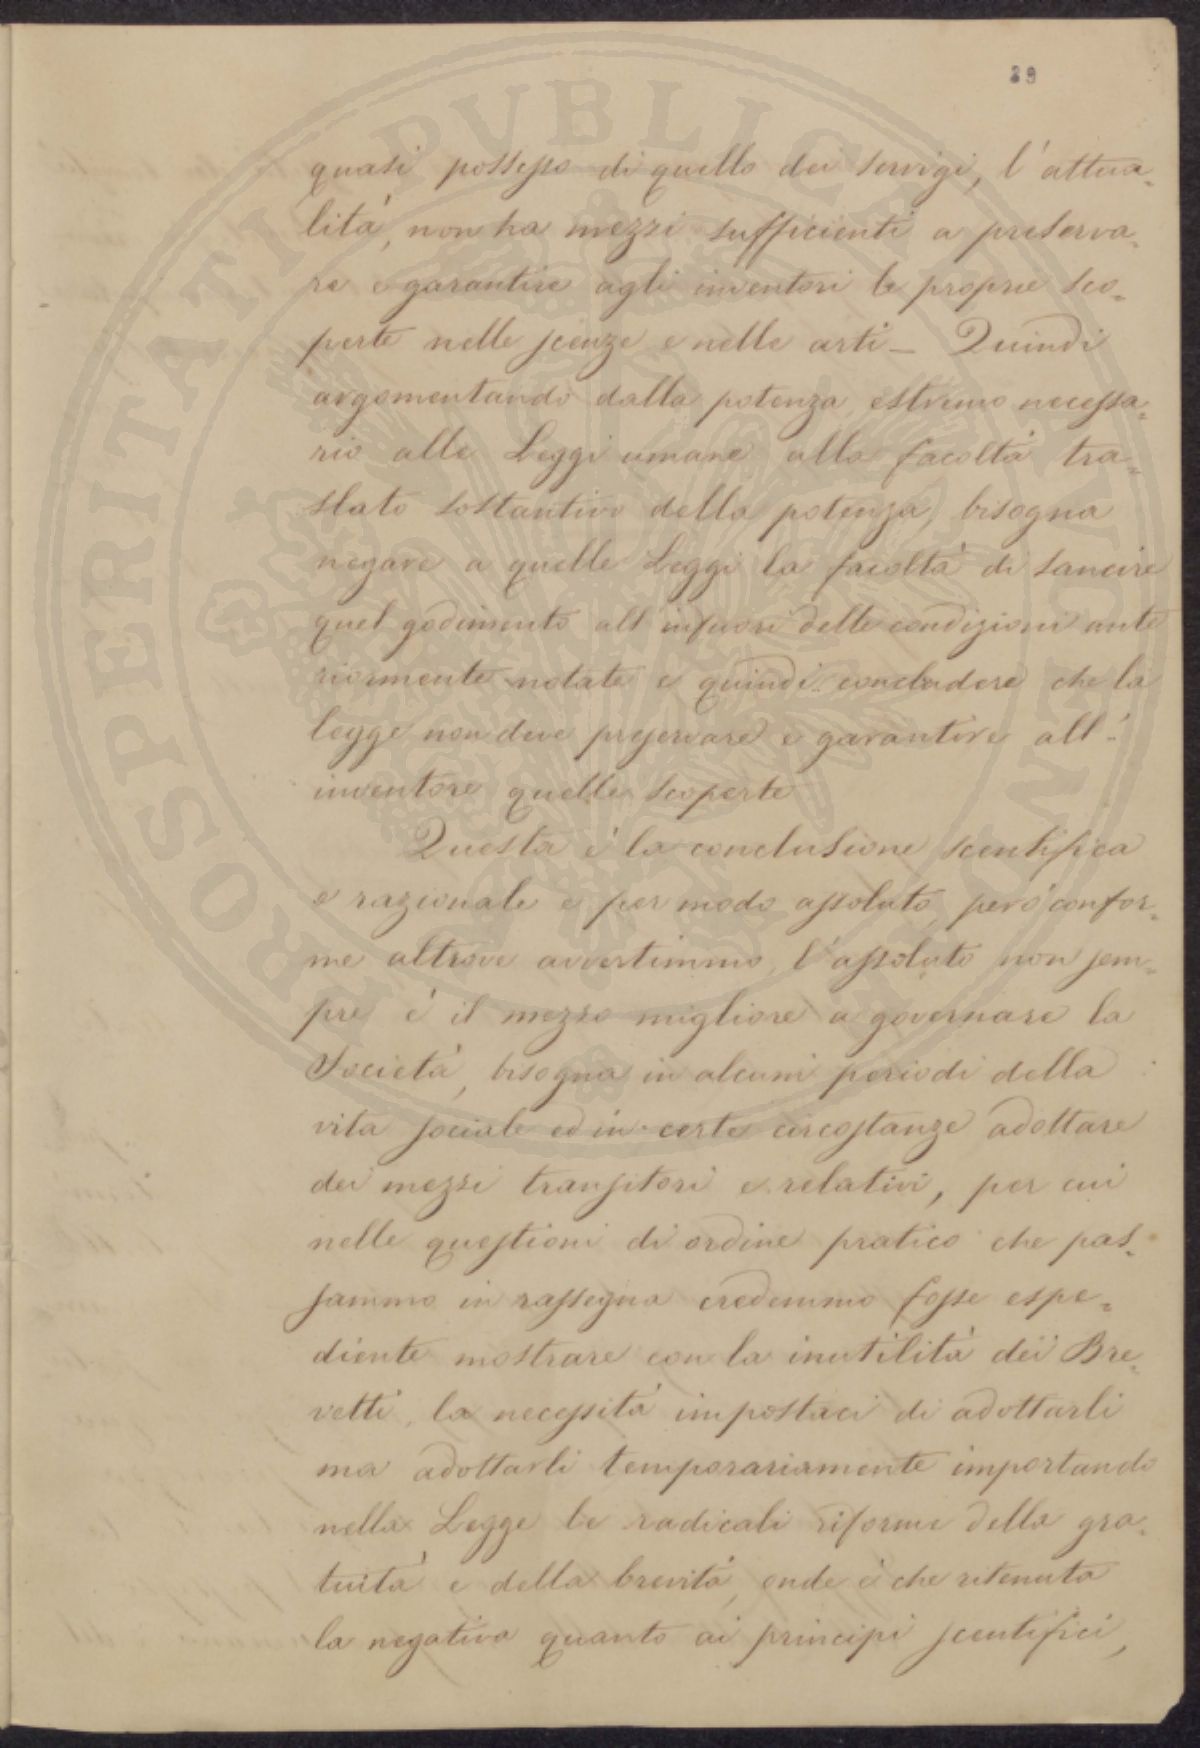 29
quasi possesso di quello dei servigi, l'attua=
lità, non ha mezzi sufficienti a preserva=
re e garantire agli inventori le proprie sco=
perte nelle scienze e nelle arti_ Quindi
argomentando dalla potenza, estremo necessa=
rio alle Leggi umane alla facoltà tra=
slato sostantivo della potenza, bisogna
negare a quelle Leggi la facoltà di sancire
quel godimento all'infuori delle condizioni ante
riormente notate e quindi concludere che la
legge non deve preservare e garantire all'=
inventore quelle scoperte
Questa è la conclusione scentifica
e razionale e per modo assoluto, però confor=
me altrove avvertimmo, l'assoluto non sem=
pre è il mezzo migliore a governare la
Società, bisogna in alcuni periodi della
vita sociale ed in certe circostanze adottare
dei mezzi transitori e relativi, per cui
nelle questioni di ordine pratico che pas=
sammo in rassegna credemmo fosse espe=
diente mostrare con la inutilità dei Bre=
vetti, la necessità impostaci di adottarli
ma adottarli temporariamente importando
nella Legge le radicali riforme della gra=
tuità e della brevità, onde è che ritenuta
la negativa quanto ai principi scentifici,
PROSPERITATI PUBLICAE